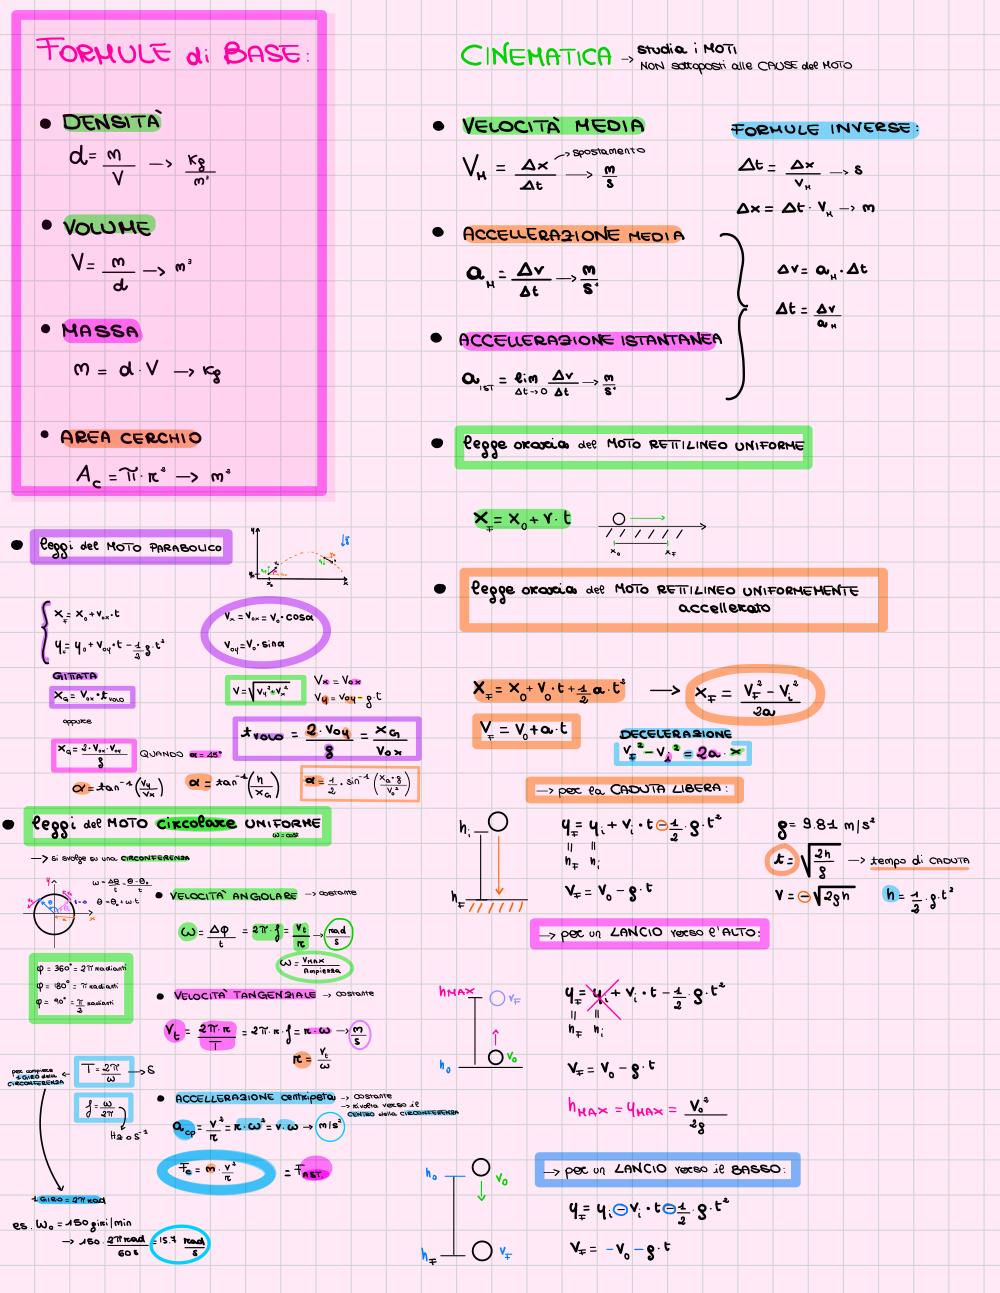 FORMULE di BASE:
• DENSITÀ
d = m/V → kg/m³
• VOLUME
V = m/d → m³
• MASSA
m = d · V → kg
• AREA CERCHIO
A_C = π · r² → m²
CINEMATICA → studia i MOTI
NON sottoposti alle CAUSE del MOTO
• VELOCITÀ MEDIA
V_M = Δx/Δt → m/s
→ spostamento
FORMULE INVERSE:
Δt = Δx/V_M → s
Δx = Δt · V_M → m
• ACCELLERAZIONE MEDIA
a_M = Δv/Δt → m/s²
Δv = a_M · Δt
Δt = Δv/a_M
• ACCELLERAZIONE ISTANTANEA
a_IST = lim Δt→0 Δv/Δt → m/s²
• legge oraria del MOTO RETTILINEO UNIFORME
x_F = x_0 + v · t
x_0 x_F
• legge oraria del MOTO RETTILINEO UNIFORMEMENTE
accellerato
x_F = x_0 + v_0 · t + 1/2 a · t² → x_F = (V_F² - V_i²)/2a
V = V_0 + a · t
DECELERAZIONE
V_F² - V_i² = 2a · x
→ per la CADUTA LIBERA:
h_i
h_F
y_F = y_i + v_i · t - 1/2 · g · t²
h_F h_i
V_F = V_0 - g · t
g = 9.81 m/s²
t = √(2h/g) → tempo di CADUTA
V = -√(2gh) h = 1/2 · g · t²
→ per un LANCIO verso l'ALTO:
h_MAX V_F
V_0
h_0
y_F = y_i + v_i · t - 1/2 · g · t²
h_F h_i
V_F = V_0 - g · t
h_MAX = y_MAX = V_0²/2g
→ per un LANCIO verso il BASSO:
h_0 V_0
h_F V_F
y_F = y_i - v_i · t - 1/2 · g · t²
V_F = -V_0 - g · t
• leggi del MOTO PARABOLICO
y g x
x_F = x_0 + v_0x · t
y_F = y_0 + v_0y · t - 1/2 g · t²
V_x = V_0x = V_0 · cosα
V_0y = V_0 · sinα
GITTATA
x_G = V_0x · t_VOLO
oppure
x_G = 2 · V_0x · V_0y / g QUANDO α = 45°
V = √(V_y² + V_x²)
V_x = V_0x
V_y = V_0y - g · t
t_VOLO = 2 · V_0y / g = x_G / V_0x
α = tan⁻¹(V_y/V_x) α = tan⁻¹(h/x_G) α = 1/2 · sin⁻¹(x_G · g / V_0²)
• leggi del MOTO circolare UNIFORME
ω = cost
→ si svolge su una CIRCONFERENZA
ω = Δθ/t = θ - θ_0
θ = θ_0 + ω t
• VELOCITÀ ANGOLARE → costante
ω = Δφ/t = 2π · f = V_t/r → rad/s
ω = V_MAX/Ampiezza
φ = 360° = 2π radianti
φ = 180° = π radianti
φ = 90° = π/2 radianti
• VELOCITÀ TANGENZIALE → costante
V_t = 2π · r/T = 2π · r · f = r · ω → m/s
r = V_t/ω
per compiere
1 GIRO della
CIRCONFERENZA
T = 2π/ω → s
f = ω/2π
Hz o s⁻¹
• ACCELLERAZIONE centripeta → costante
→ rivolta verso il
CENTRO della CIRCONFERENZA
a_cp = v²/r = r · ω² = v · ω → m/s²
F_c = m · v²/r = F_AST
1 GIRO = 2π rad
es. ω_0 = 150 giri/min
→ 150 · 2π rad/60 s = 15.7 rad/s